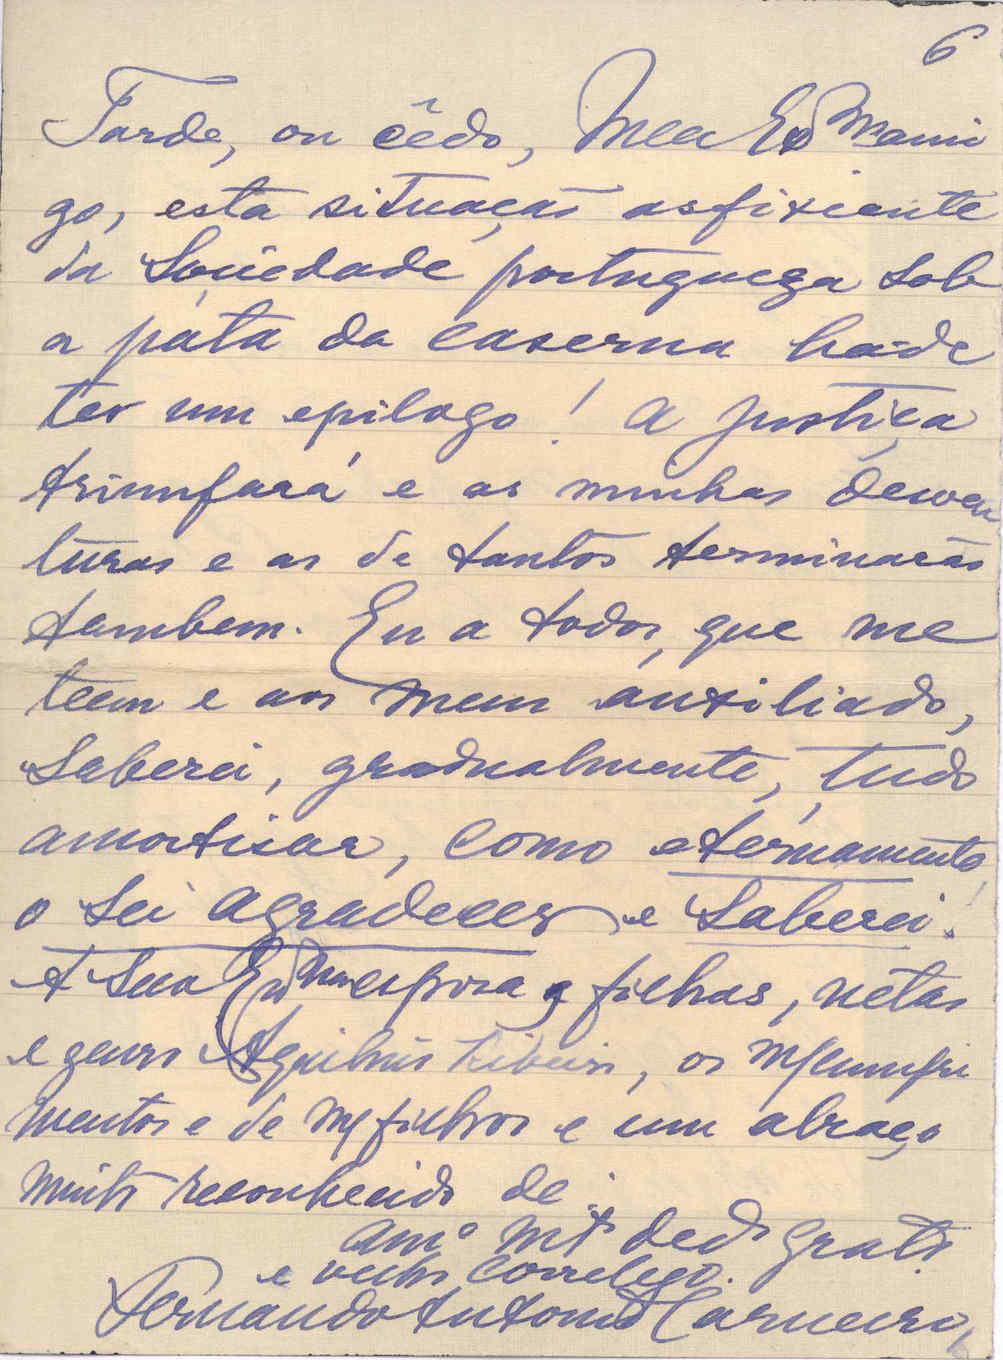 6
Tarde, ou cêdo, Meu Exmo ami
go, esta situação asfixiante
da Sociedade portugueza sob
a pata da caserna ha-de
ter um epilogo! A justiça
triunfará e as minhas desven
turas e as de tantos terminarão
tambem. Eu a todos, que me
teem e aos meus auxiliado,
Saberei, gradualmente, tudo
amortisar, como eternamente
o sei agradecer e Saberei!
A Sua Exma esposa e filhas, netas
e genro Aquilino Ribeiro, os m/ cumpri
mentos e de m/ filhos e um abraço
muito reconhecido de
amº mtº dedº grato
e velho correlego.
Fernando Antonio Carneiro,